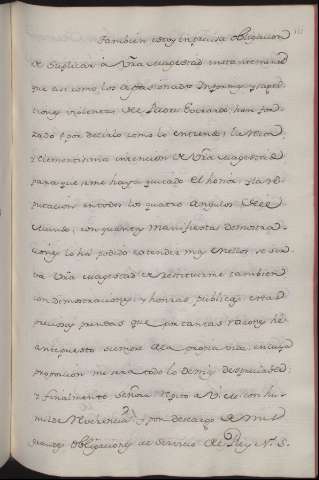 Tambien estoy en precisa obligacion
de suplicar á Vra Magestad
que asi como los apasionados Informes y
violentas del Padre Everardo, han for-
zado (por decirlo como lo entiendo) la Recta,
y clementisima intencion de Vra Magestad
para que se me haya quitado el honor, y la Re-
putacion en todos los quatro Angulos del
Mundo; con quantas manifiestas demostra-
ciones lo ha podido entender muy en ellos se sir-
va Vra Magestad de restituirme tambien
con demostraciones, y honras publicas, estas
preciosas prendas que por tantas razones hé
antepuesto siempre á la propia vida; en cuya
proporcion me sera todo lo demas despreciable;
y finalmente Señora repito á V. M. con hu-
milde Reverencia, y por descargo de mis
grandes obligaciones al servicio del Rey N. S.